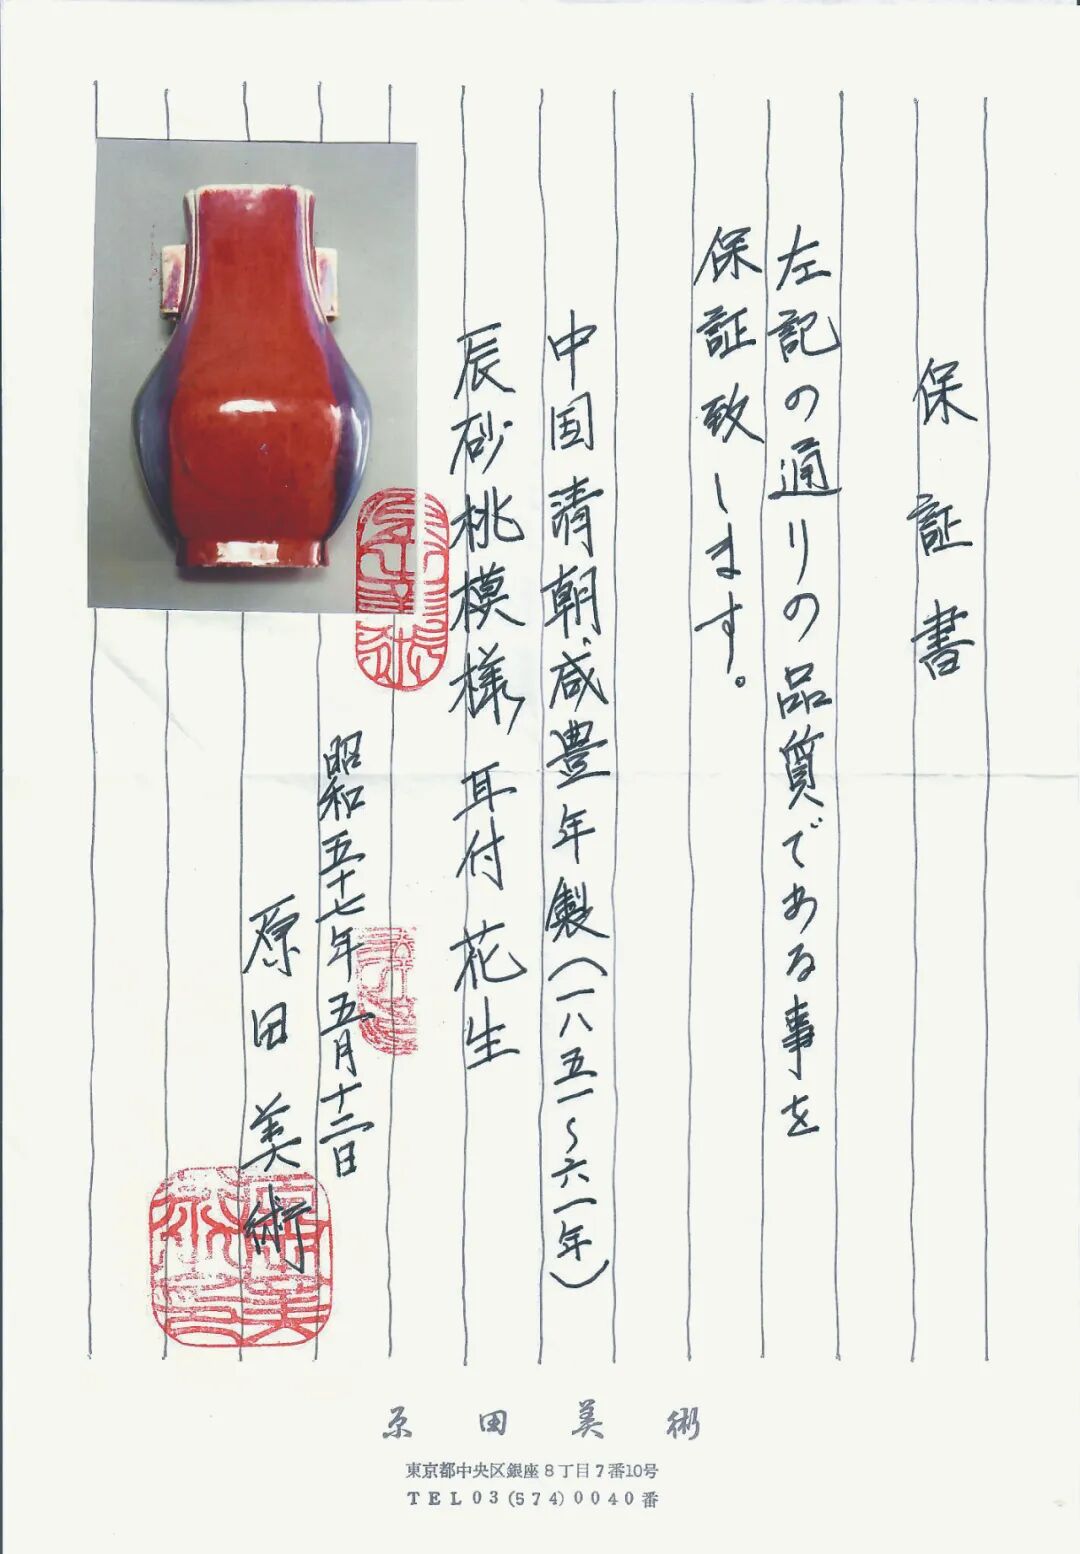 保証書
左記の通りの品質である事を
保証致します。
中国清朝、咸豊年製(一八五一〜六一年)
辰砂桃模様、耳付花生
昭和五十七年五月十二日
原田美術
原田美術
東京都中央区銀座8丁目7番10号
TEL03(574)0040番